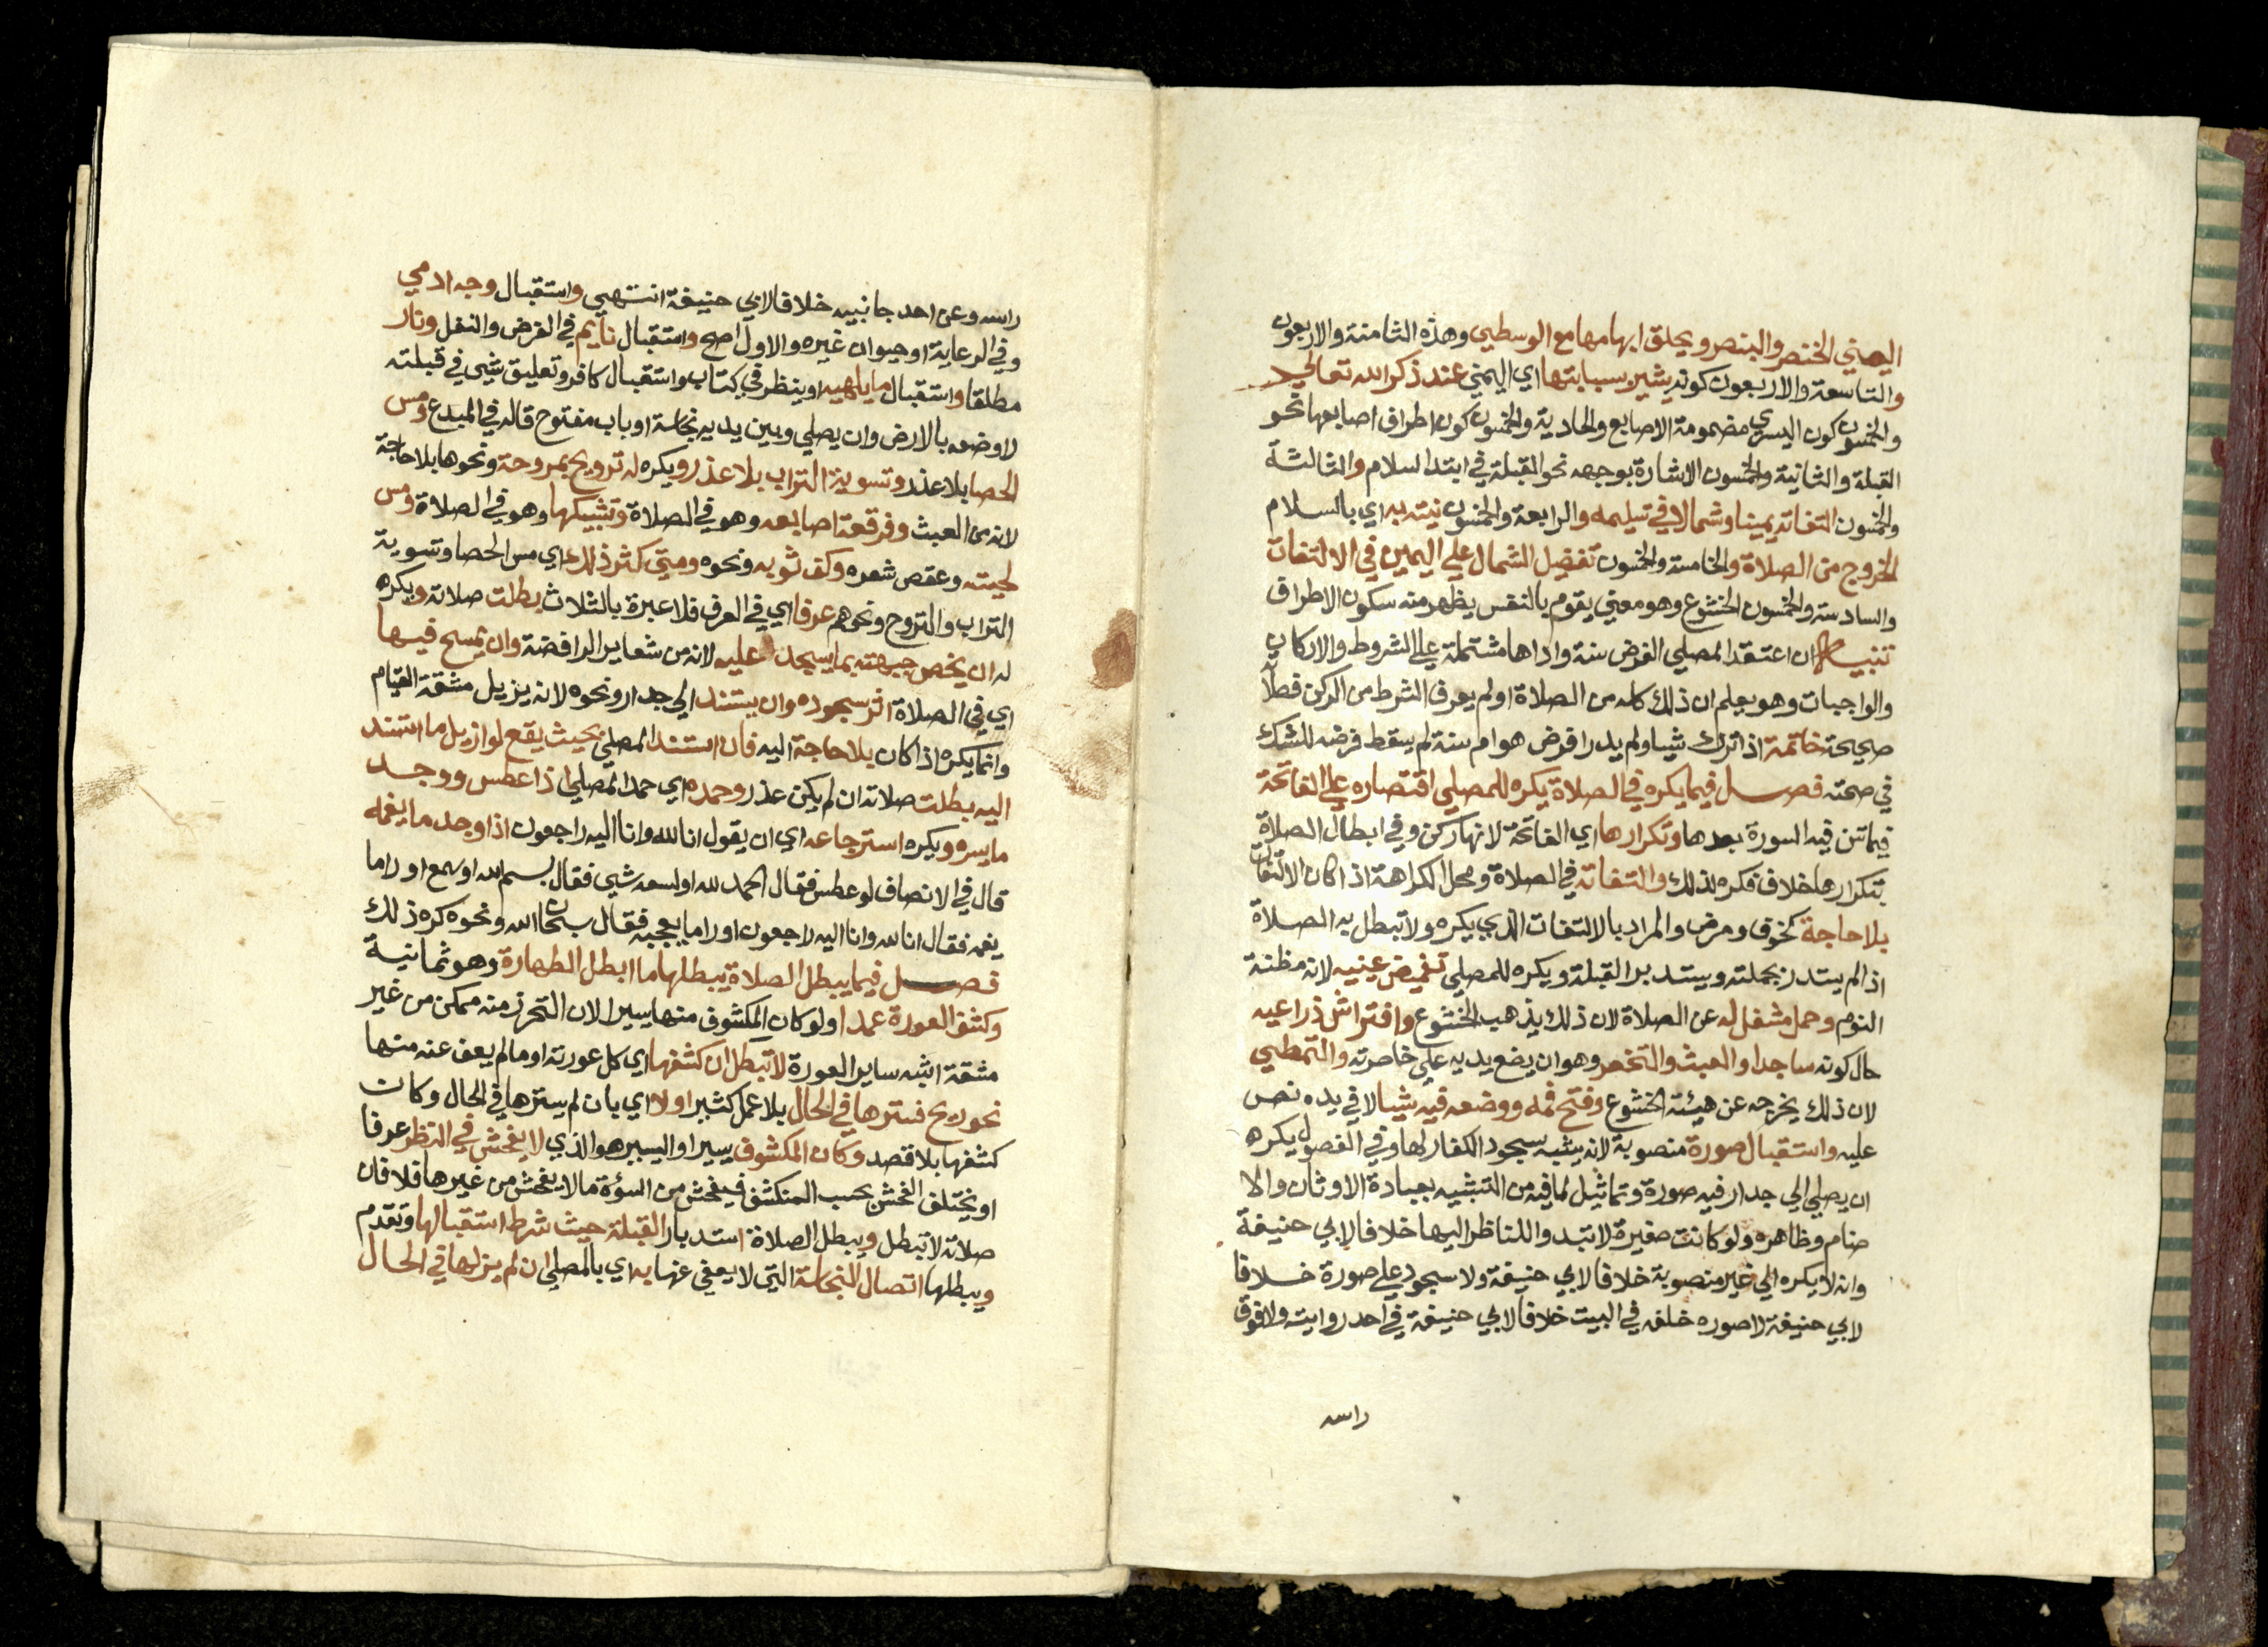 اليمني الخنصر والبنصر ويحلق ابهامها مع الوسطي وهذه الثامنة والاربعون
والتاسعة والاربعون كونه يشير بسبابتها اي اليمني عند ذكر الله تعالي
والخمسون كون اليسري مضمومة الاصابع والحادية والخمسون كون اطراف اصابعها نحو
القبلة والثانية والخمسون الاشارة بوجهه نحو القبلة في ابتدا السلام والثالثة
والخمسون التفاته يمينا وشمالا في تسليمه والرابعة والخمسون نيته به اي بالسلام
الخروج من الصلاة والخامسة والخمسون تفضيل الشمال علي اليمين في الالتفات
والسادسة والخمسون الخشوع وهو معني يقوم بالنفس يظهر منه سكون الاطراف
تنبيه ان اعتقد المصلي الفرض سنة واداها مشتملة علي الشروط والاركان
والواجبات وهو يعلم ان ذلك كله من الصلاة او لم يعرف الشرط من الركن فصلا
صحيحة خاتمة اذا ترك شيا ولم يدر افرض هو ام سنة لم يسقط فرضه للشك
في صحته فصل فيما يكره في الصلاة يكره للمصلي اقتصاره علي الفاتحة
فيما تسن فيه السورة بعدها وتكرارها اي الفاتحة لانها ركن وفي ابطال الصلاة
بتكرارها خلاف فكره لذلك والتفاته في الصلاة ومحل الكراهة اذا كان الالتفات
بلا حاجة كخوف ومرض والمراد بالالتفات الذي يكره ولا تبطل به الصلاة
اذا لم يستدر بجملته ويستدبر القبلة ويكره للمصلي تغميض عينيه لانه مظنة
النوم وحمل مشغل له عن الصلاة لان ذلك يذهب الخشوع وافتراش ذراعيه
حال كونه ساجدا والعبث والتخصر وهو ان يضع يديه علي خاصرته والتمطي
لان ذلك يخرجه عن هيئة الخشوع وفتح فمه ووضعه فيه شيا لا في يده نص
عليه واستقبال صورة منصوبة لانه يشبه سجود الكفار لها وفي الفصول يكره
ان يصلي الي جدار فيه صورة وتماثيل لما فيه من التشبيه بعبادة الاوثان والا
صنام وظاهره ولو كانت صغيرة لا تبدو للناظر اليها خلافا لابي حنيفة
وانه لا يكره الي غير منصوبة خلافا لابي حنيفة ولا سجود علي صورة خلافا
لابي حنيفة لا صوره خلفه في البيت خلافا لابي حنيفة في احد روايته ولا فوق
راسه
راسه وعن احد جانبيه خلافا لابي حنيفة انتهي واستقبال وجه ادمي
وفي الرعاية او حيوان غيره والاول اصح واستقبال نايم في الفرض والنفل ونار
مطلقا واستقبال ما يلهيه او ينظر في كتاب واستقبال كافر وتعليق شي في قبلته
لا وضعه بالارض وان يصلي وبين يديه نجاسة او باب مفتوح قاله في المبدع ومس
الحصا بلا عذر وتسوية التراب بلا عذر ويكره له تروح بمروحة ونحوها بلا حاجة
لانه من العبث وفرقعة اصابعه وهو في الصلاة وتشبيكها وهو في الصلاة ومس
لحيته وعقص شعره وكف ثوبه ونحوه ومتي كثر ذلك اي مس الحصا وتسوية
التراب والتروح ونحوهم عرفا اي في العرف فلا عبرة بالثلاث بطلت صلاته ويكره
له ان يخص جبهته بما يسجد عليه لانه من شعاير الرافضة وان يمسح فيها
اي في الصلاة اثر سجوده وان يستند الي جدار ونحوه لانه يزيل مشقة القيام
وانما يكره اذا كان بلا حاجة اليه فان استند المصلي بحيث يقع لو ازيل ما استند
اليه بطلت صلاته ان لم يكن عذر وحمده اي حمد المصلي اذا عطس ووجد
ما يسره ويكره استرجاعه اي ان يقول انا لله وانا اليه راجعون اذا وجد ما يغمه
قال في الانصاف لو عطس فقال الحمد لله او لسعه شي فقال بسم الله او سمع او راما
يغمه فقال انا لله وانا اليه راجعون او راما يعجبه فقال سبحان الله ونحوه كره ذلك
فصل فيما يبطل الصلاة يبطلها ما ابطل الطهارة وهو ثمانية
وكشف العورة عمدا ولو كان المكشوف منها يسيرا لان التحرز منه ممكن من غير
مشقة اشبه ساير العورة لا تبطل ان كشفها اي كل عورته او ما لم يعف عنه منها
نحو ريح فسترها في الحال بلا عمل كثير او لا اي بان لم يسترها في الحال وكان
كشفها بلا قصد وكان المكشوف يسيرا واليسير هو الذي لا يفحش في النظر عرفا
او يختلف الفحش بحسب المنكشف فيفحش من السؤة ما لا يفحش من غيرها فلا فان
صلاته لا تبطل ويبطل الصلاة استدبار القبلة حيث شرط استقبالها وتقدم
ويبطلها اتصال النجاسة التي لا يعفي عنها به اي بالمصلي ان لم يزلها في الحال